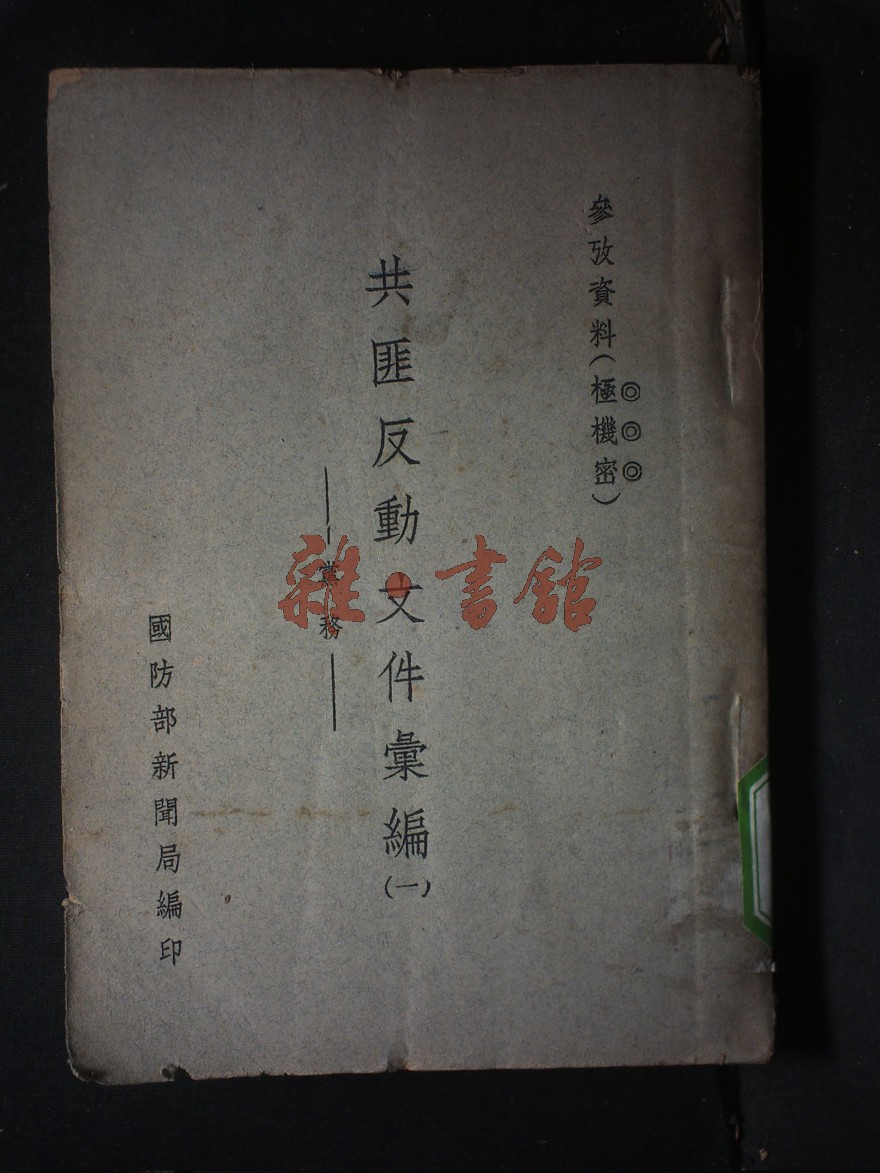 參攷資料(極機密)
◎◎◎
共匪反動文件彙編(一)
——黨務——
國防部新聞局編印
雜·書館